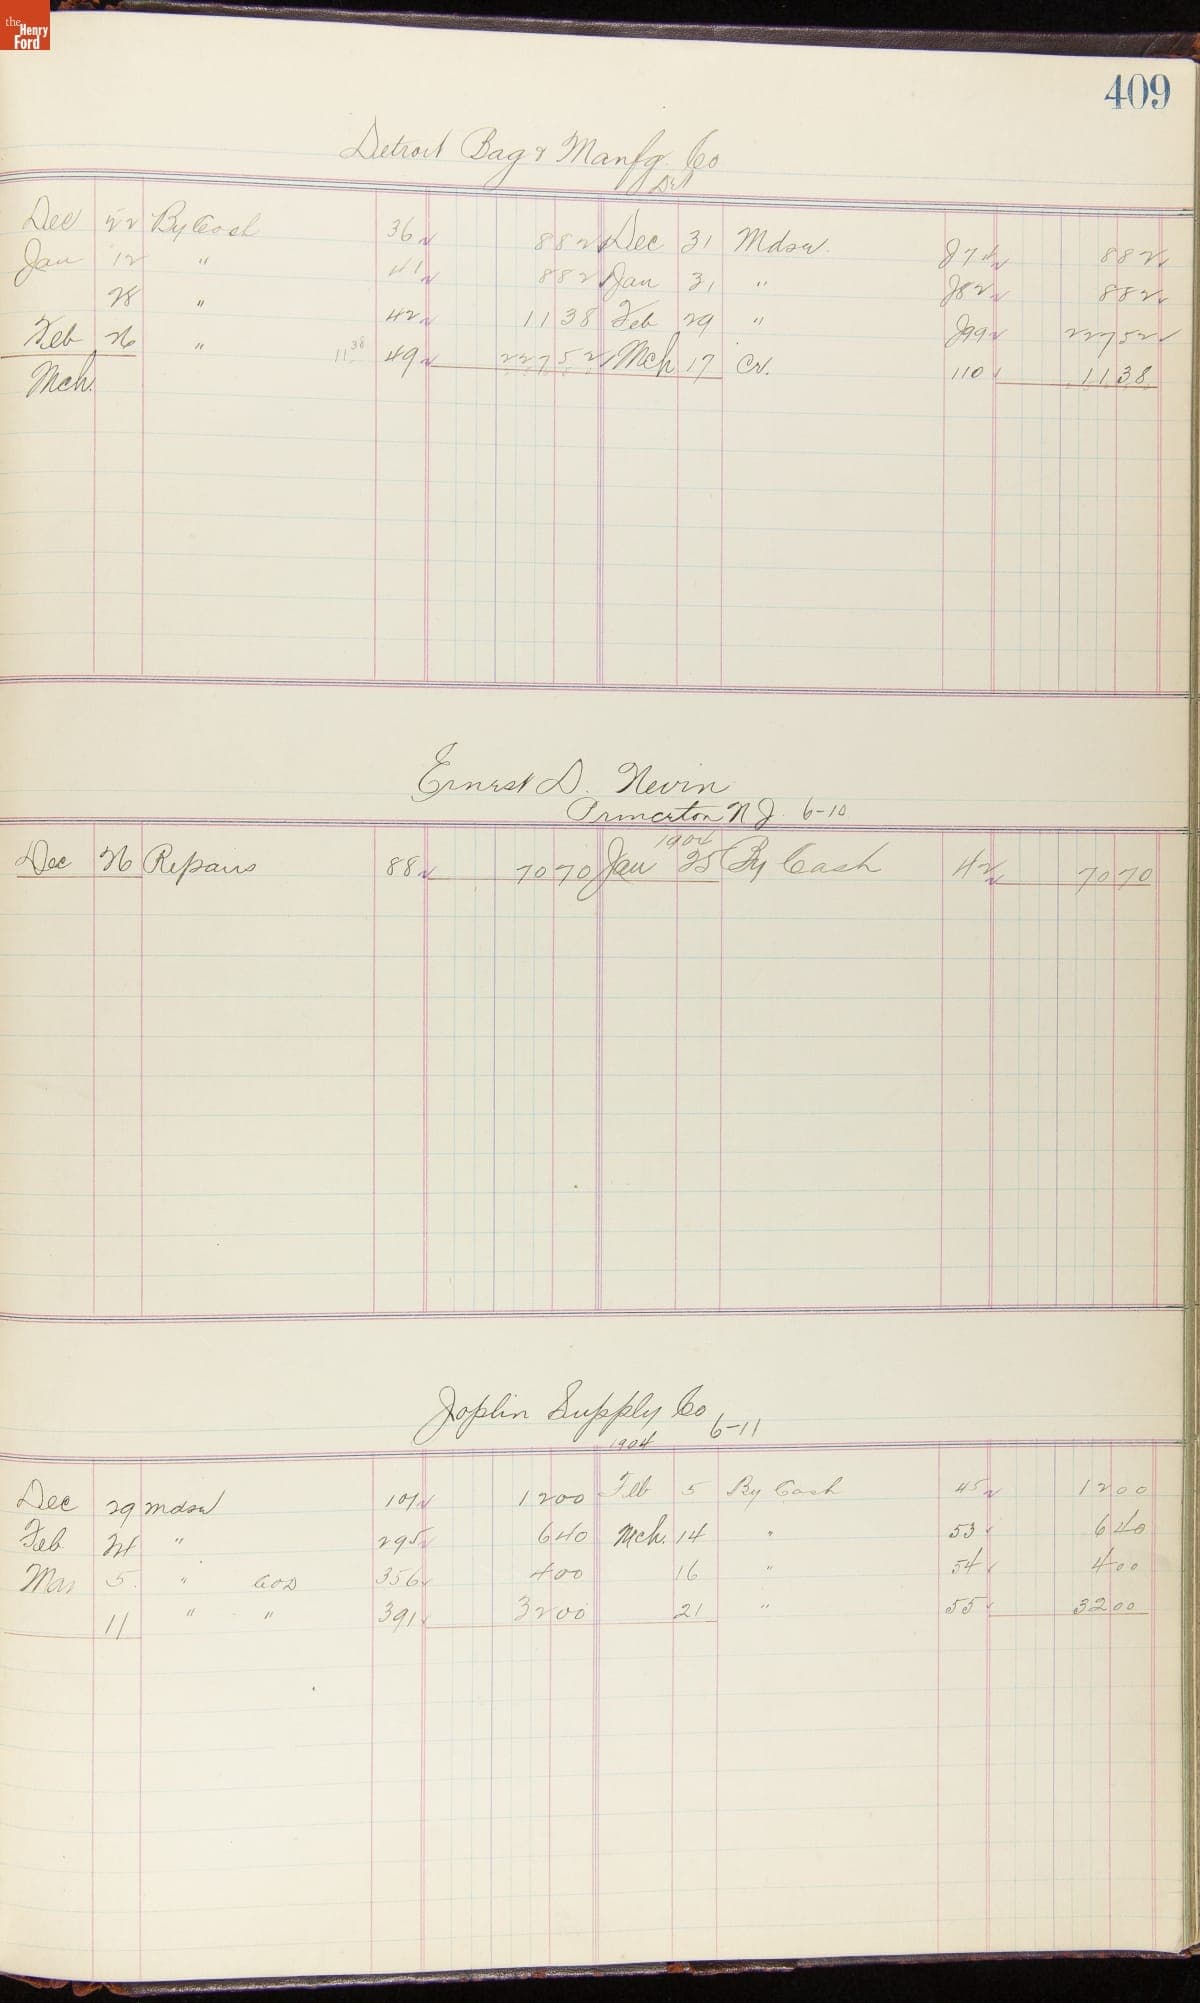 the Henry Ford
409
Detroit Bag & Manfg. Co
Det
Dec 22 By Cash 36 882 Dec 31 Mdse. J74 882
Jan 12 " 41 882 Jan 31 " J82 882
28 " 42 1138 Feb 29 " J99 22752
Feb 26 " 11 38 49 22752 Mch 17 Cr. 110 1138
Mch.
Ernest D. Nevin
Princeton N J. 6-10
1904
Dec 26 Repairs 88 7070 Jan 25 By Cash 42 7070
Joplin Supply Co
6-11
1904
Dec 29 Mdse 101 1200 Feb 5 By Cash 45 1200
Feb 24 " 295 640 Mch. 14 " 53 640
Mar 5. " COD 356 400 16 " 54 400
11 " " 391 3200 21 " 55 3200